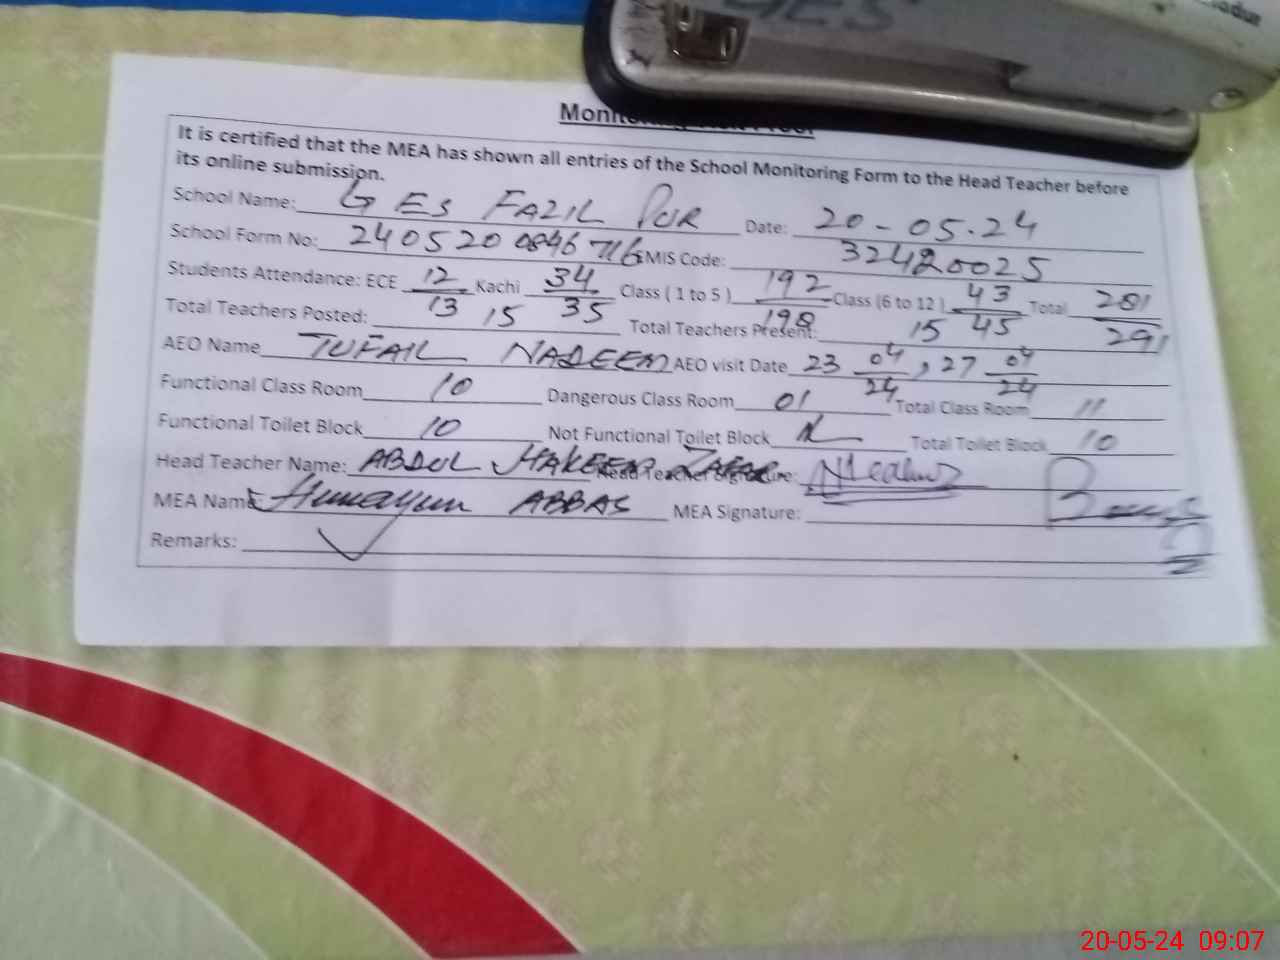 YES
Monit
It is certified that the MEA has shown all entries of the School Monitoring Form to the Head Teacher before
its online submission.
School Name: GES FAZIL PUR Date: 20-05.24
School Form No: 2405200846716 EMIS Code: 32420025
Students Attendance: ECE 12/13 Kachi 34/35 Class ( 1 to 5 ) 192/198 Class (6 to 12 ) 43/45 Total 281/291
Total Teachers Posted: 15 Total Teachers Present: 15
AEO Name TUFAIL NADEEM AEO visit Date 23 04/24, 27 04/24
Functional Class Room 10 Dangerous Class Room 01 Total Class Room 11
Functional Toilet Block 10 Not Functional Toilet Block Total Toilet Block 10
Head Teacher Name: ABDUL HAKEEM ZAFAR Head Teacher Signature:
MEA Name: Humayun ABBAS MEA Signature:
Remarks:
20-05-24 09:07